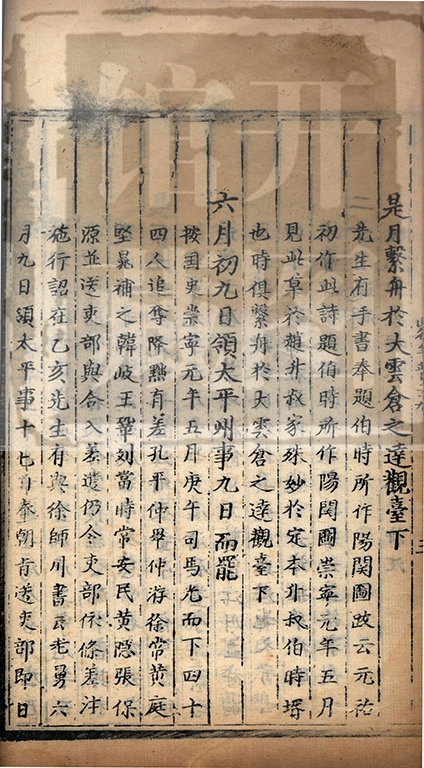 是月繫舟於大雲倉之達觀臺下
二先生有手書奉題伯時所作陽関圖政云元祐
初作此詩題伯時所作陽関圖崇寧元年五月
見此草於趙升叔家殊妙於定本升叔伯時壻
也時俱繫舟於大雲倉之達觀臺下
六月初九日領太平州事九日而罷
按国史崇寧元年五月庚午司馬光而下四十
四人追奪降黜有差孔平仲畢仲游徐常黄庭
堅晁補之韓岐王鞏刘當時常安民黄隱張保
源並送吏部與合入差遣仍令吏部依條差注
施行詔在乙亥先生有與徐師川書云老舅六
月九日領太平事十七日奉朝肯送吏部即日
开
馆